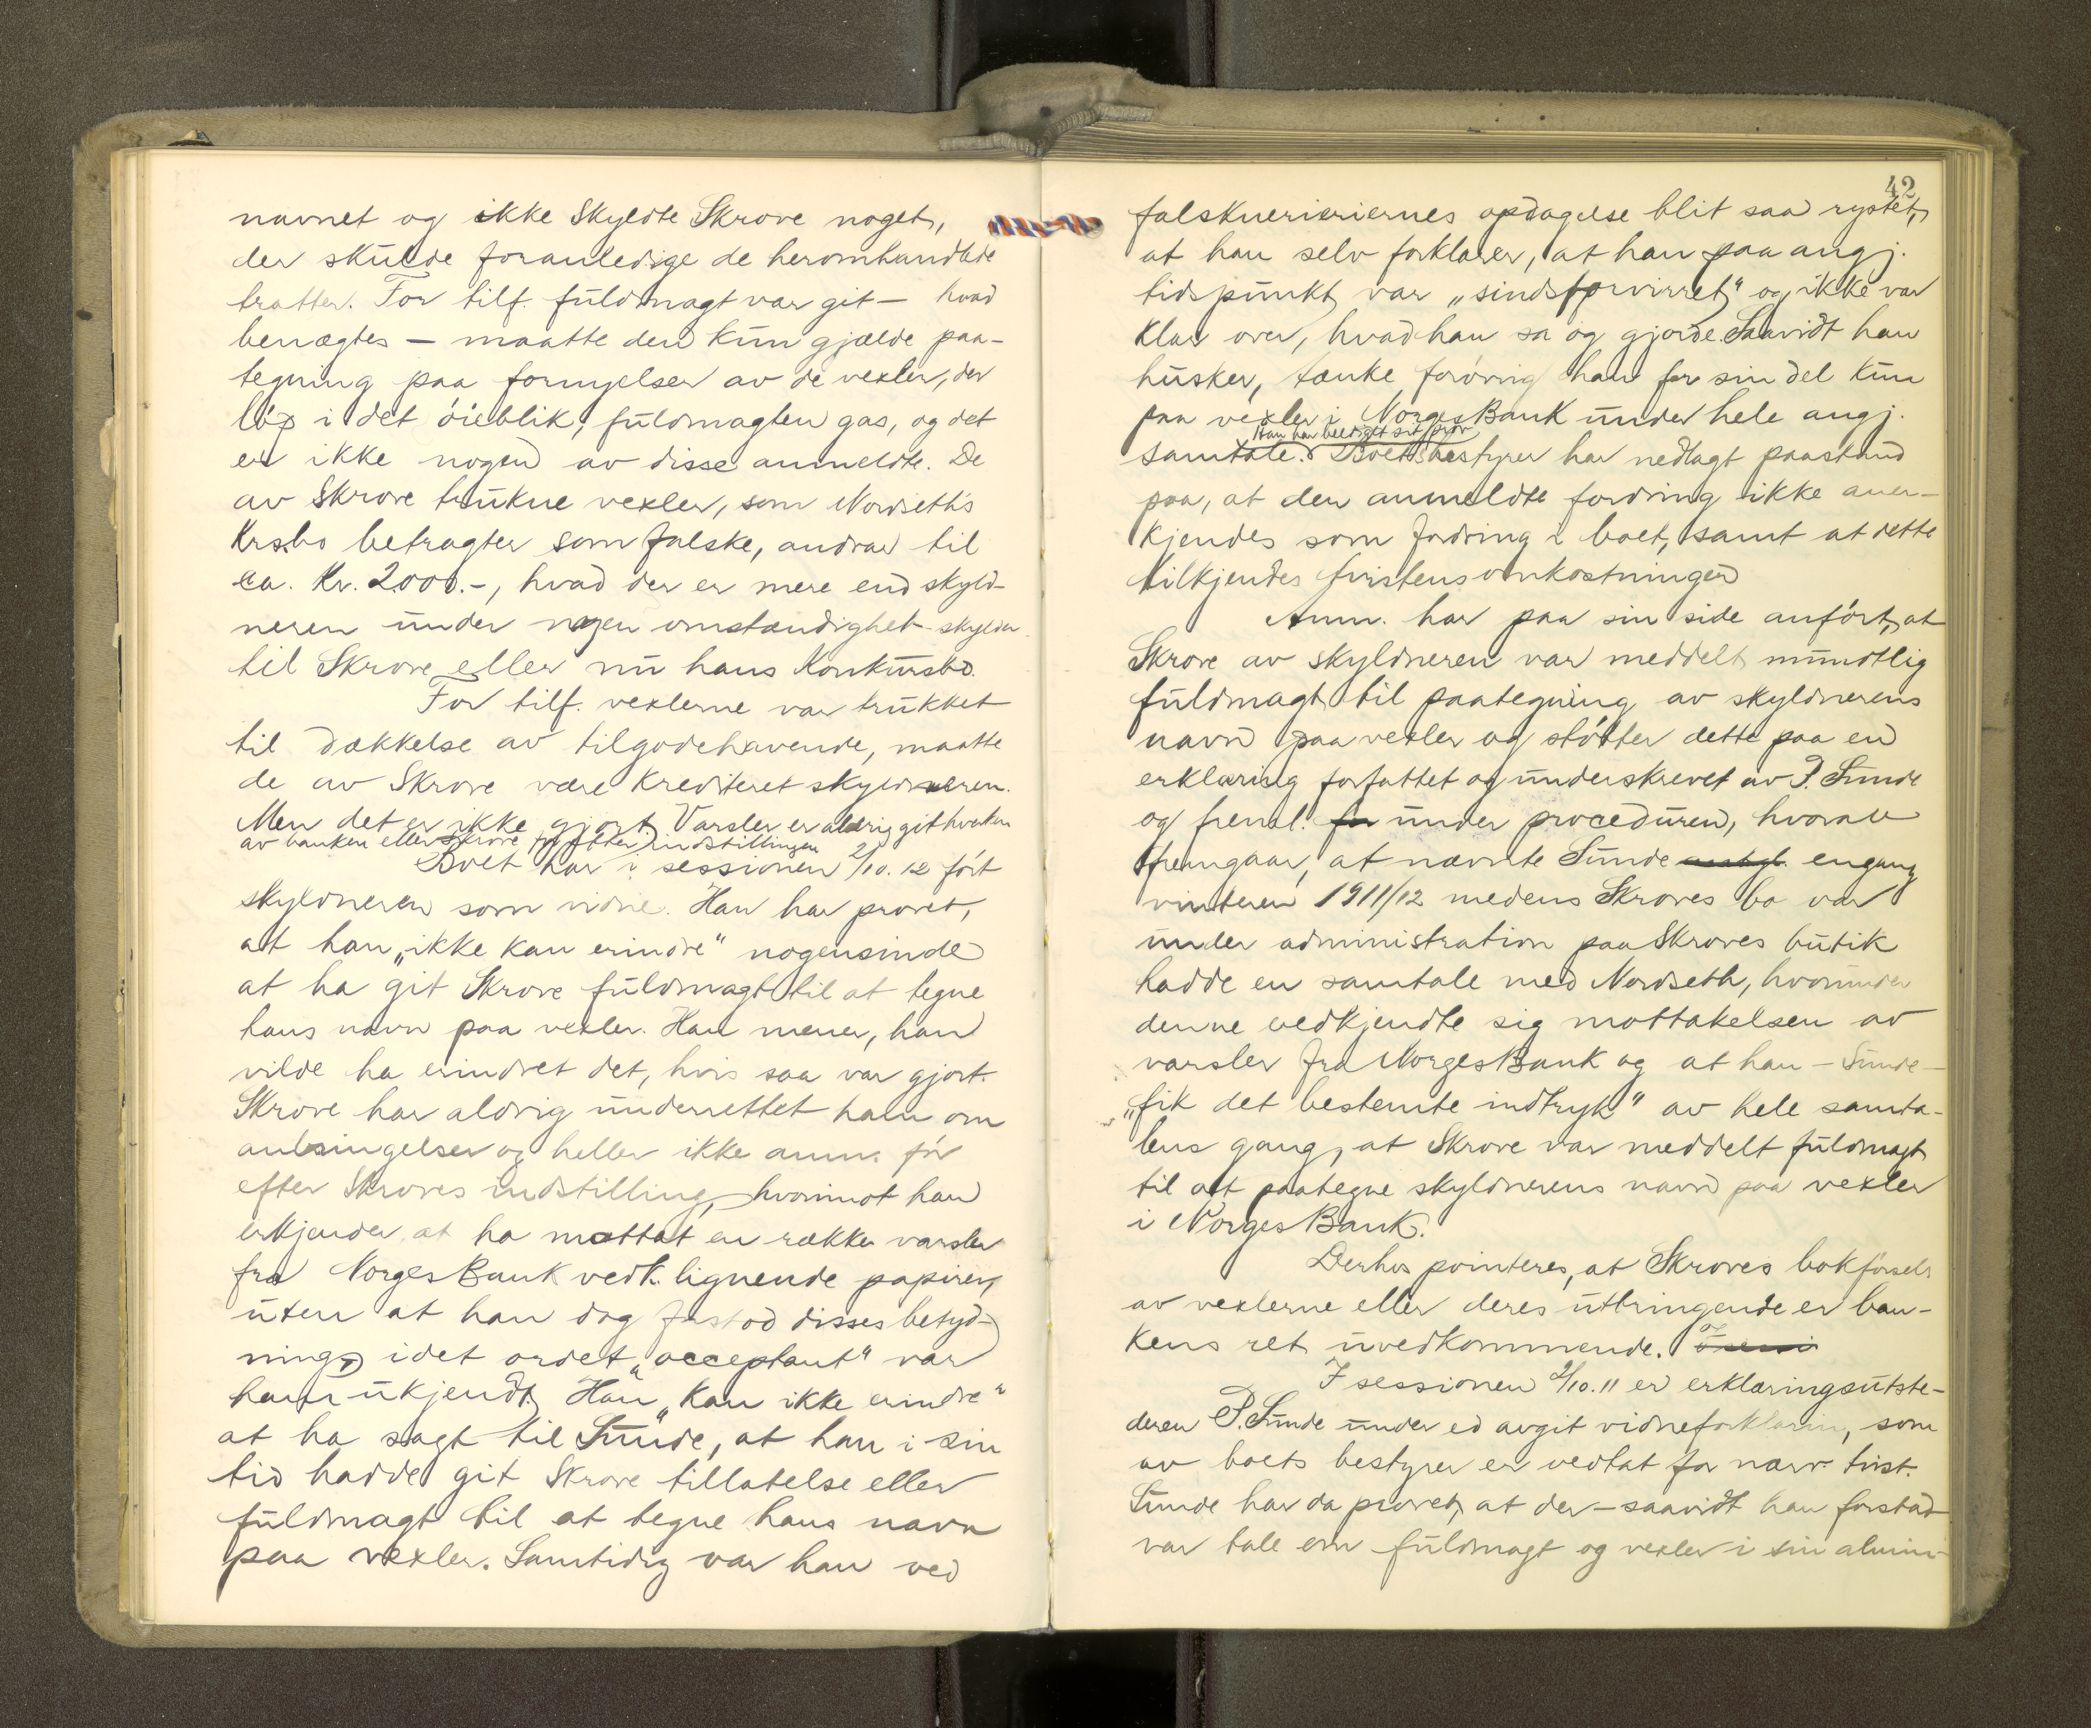 navnet og ikke skyldte Skrove noget,
der skulde foranledige de heromhandlede
tratter. For tilf. fuldmagt var git – hvad
benægtes – maatte den kun gjælde paa-
tegning paa fornyelser av de vexler, der
løp i det øieblik, fuldmagten gas, og det
er ikke nogen av disse anmeldte. De
av Skrove trukne vexler, som Nordseth's
Krs.bo betragter som falske, andrar til
ca. Kr. 2000.-, hvad der er mere end skyld-
neren under nogen omstændighet skylder
til Skrove eller nu hans Konkursbo.
For tilf. vexlerne var trukket
til dækkelse av tilgodehavende, maatte
de av Skrove være krediteret skyldneren.
Men det er ikke gjort. Varsler er aldrig git hverken
av banken eller Skrove før efter indstillingen
Boet har i sessionen 2/10.12 ført
skyldneren som vidne. Han har provet,
at han „ikke kan erindre" nogensinde
at ha git Skrove fuldmagt til at tegne
hans navn paa vexler. Han mener, han
vilde ha erindret det, hvis saa var gjort.
Skrove har aldrig underrettet ham om
anbringelser og heller ikke anm. før
efter Skroves indstilling, hvorimot han
erkjender at ha mottat en række varsler
fra Norges Bank vedk. lignende papirer,
uten at han dog forstod disses betyd-
ning, idet ordet „acceptant" var
ham ukjendt. Han „kan ikke erindre"
at ha sagt til Sunde, at han i sin
tid hadde git Skrove tillatelse eller
fuldmagt til at tegne hans navn
paa vexler. Samtidig var han ved
42
falsknerieriernes opdagelse blit saa rystet,
at han selv forklarer, at han paa angj.
tidspunkt var „sindsforvirret" og ikke var
klar over, hvad han sa og gjorde. Saavidt han
husker, tænkte forøvrig han for sin del kun
paa vexler i Norges Bank under hele angj.
Han har beediget sit prov
samtale. Boets bestyrer har nedlagt paastand
paa, at den anmeldte fordring ikke aner-
kjendes som fordring i boet, samt at dette
tilkjendes tvistens omkostninger
Anm. har paa sin side anført, at
Skrove av skyldneren var meddelt mundtlig
fuldmagt til paategning av skyldnerens
navn paa vexler og støtter dette paa en
erklæring forfattet og underskrevet av P. Sunde
og freml. for under proceduren, hvorav
fremgaar, at nævnte Sunde engang
vinteren 1911/12 medens Skroves bo var
under administration paa Skroves butik
hadde en samtale med Nordseth, hvorunder
denne vedkjendte sig mottakelsen av
varsler fra Norges Bank og at han – Sunde –
„fik det bestemte indtryk" av hele samta-
lens gang, at Skrove var meddelt fuldmagt
til at paategne skyldnerens navn paa vexler
i Norges Bank.
Derhos pointeres, at Skroves bokførsel
av vexlerne eller deres utbringende er ban-
kens ret uvedkommende.
I sessionen 2/10.11 er erklæringsutste-
deren P. Sunde under ed avgit vidneforklaring, som
av boets bestyrer er vedtat for nærv. tvist.
Sunde har da provet, at der – saavidt han forstod
var tale om fuldmagt og vexler i sin almin-